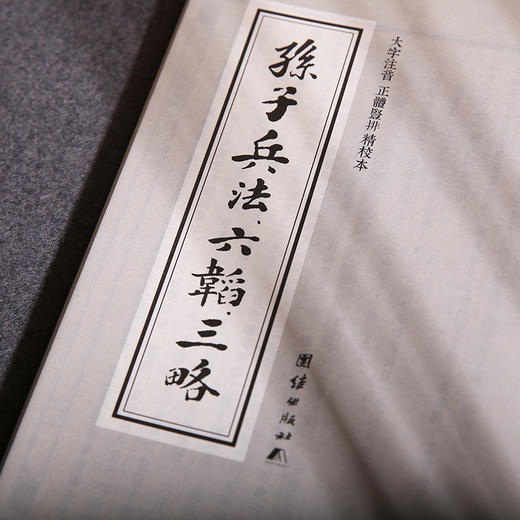 大字注音 正體豎排 精校本
孫子兵法·六韜·三略
團结出版社